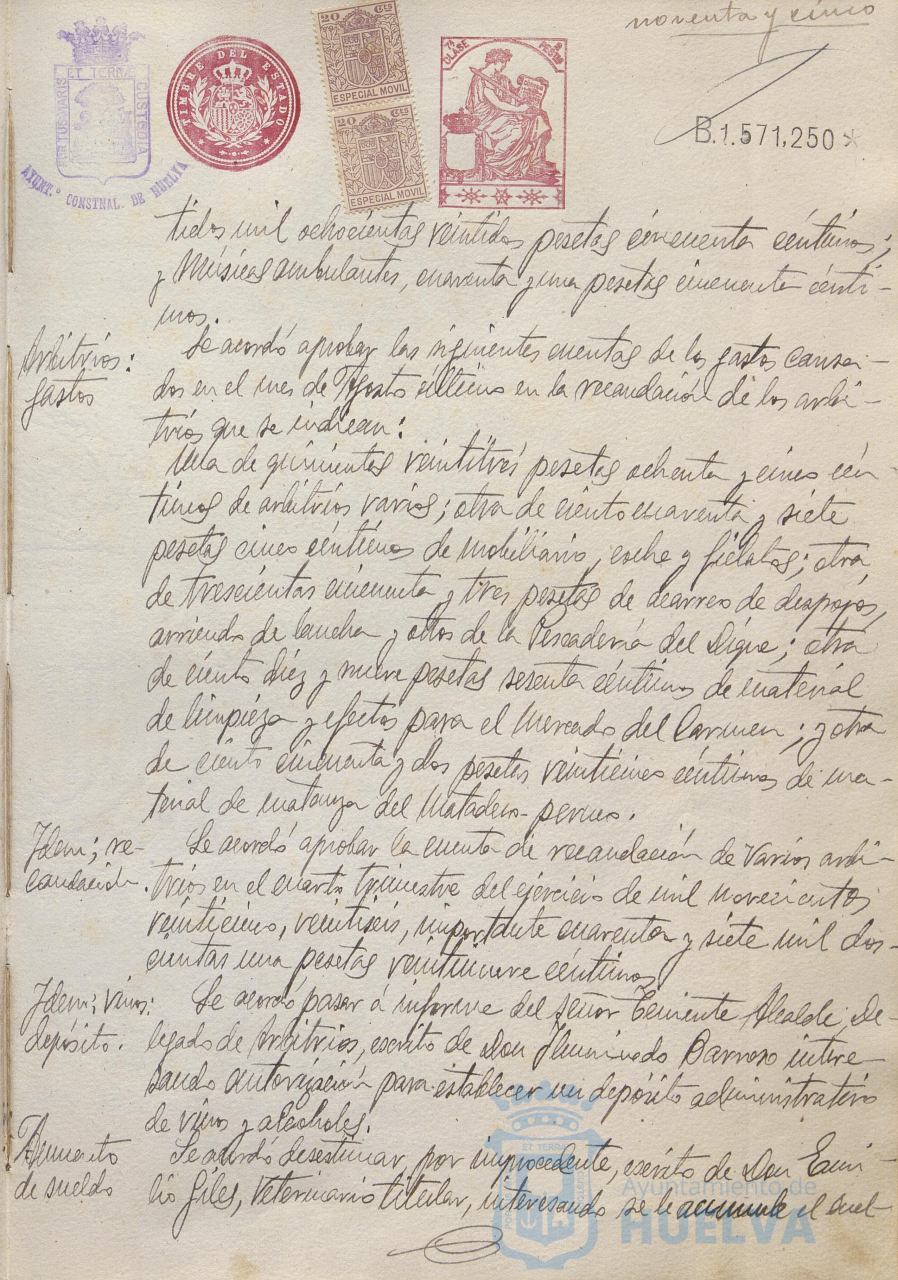 noventa y cinco
ET TERRA
PORTUS MARIS
CUSTODIA
AYUNT.º CONSTNAL. DE HUELVA
TIMBRE DEL ESTADO
20 Cts
ESPECIAL MOVIL
20 Cts
ESPECIAL MOVIL
7ª CLASE
PESETAS
B.1.571,250
tidos mil ochocientas veintidos pesetas cincuenta céntimos;
y Músicas ambulantes, cuarenta y una pesetas cincuenta cénti-
mos.
Arbitrios:
gastos
Se acordó aprobar las siguientes cuentas de los gastos causa-
dos en el mes de Agosto último en la recaudación de los arbi-
trios que se indican:
Una de quinientas veintitres pesetas ochenta y cinco cén-
timos de arbitrios varios; otra de ciento cuarenta y siete
pesetas cinco céntimos de mobiliario, coche y fielatos; otra
de trescientas cincuenta y tres pesetas de acarreo de despojos,
arriendo de lancha y otros de la Pescadería del Dique; otra
de ciento diez y nueve pesetas sesenta céntimos de material
de limpieza y efectos para el Mercado del Carmen; y otra
de ciento cincuenta y dos pesetas veinticinco céntimos de ma-
terial de matanza del Matadero-perros.
Idem; re-
caudación.
Se acordó aprobar la cuenta de recaudación de Varios arbi-
trios en el cuarto trimestre del ejercicio de mil novecientos
veinticinco, veintiseis, importante cuarenta y siete mil dos-
cientas una pesetas veintinueve céntimos
Idem; vinos:
depósito.
Se acordó pasar á informe del señor Teniente Alcalde, De-
legado de Arbitrios, escrito de Don Iluminado Barroso intere-
sando autorización para establecer un depósito administrativo
de vinos y alcoholes.
Aumento
de sueldo
Se acordó desestimar, por improcedente, escrito de Don Emi-
lio Giles, Veterinario titular, interesando se le aumente el suel-
ET TERRA
Ayuntamiento de
HUELVA